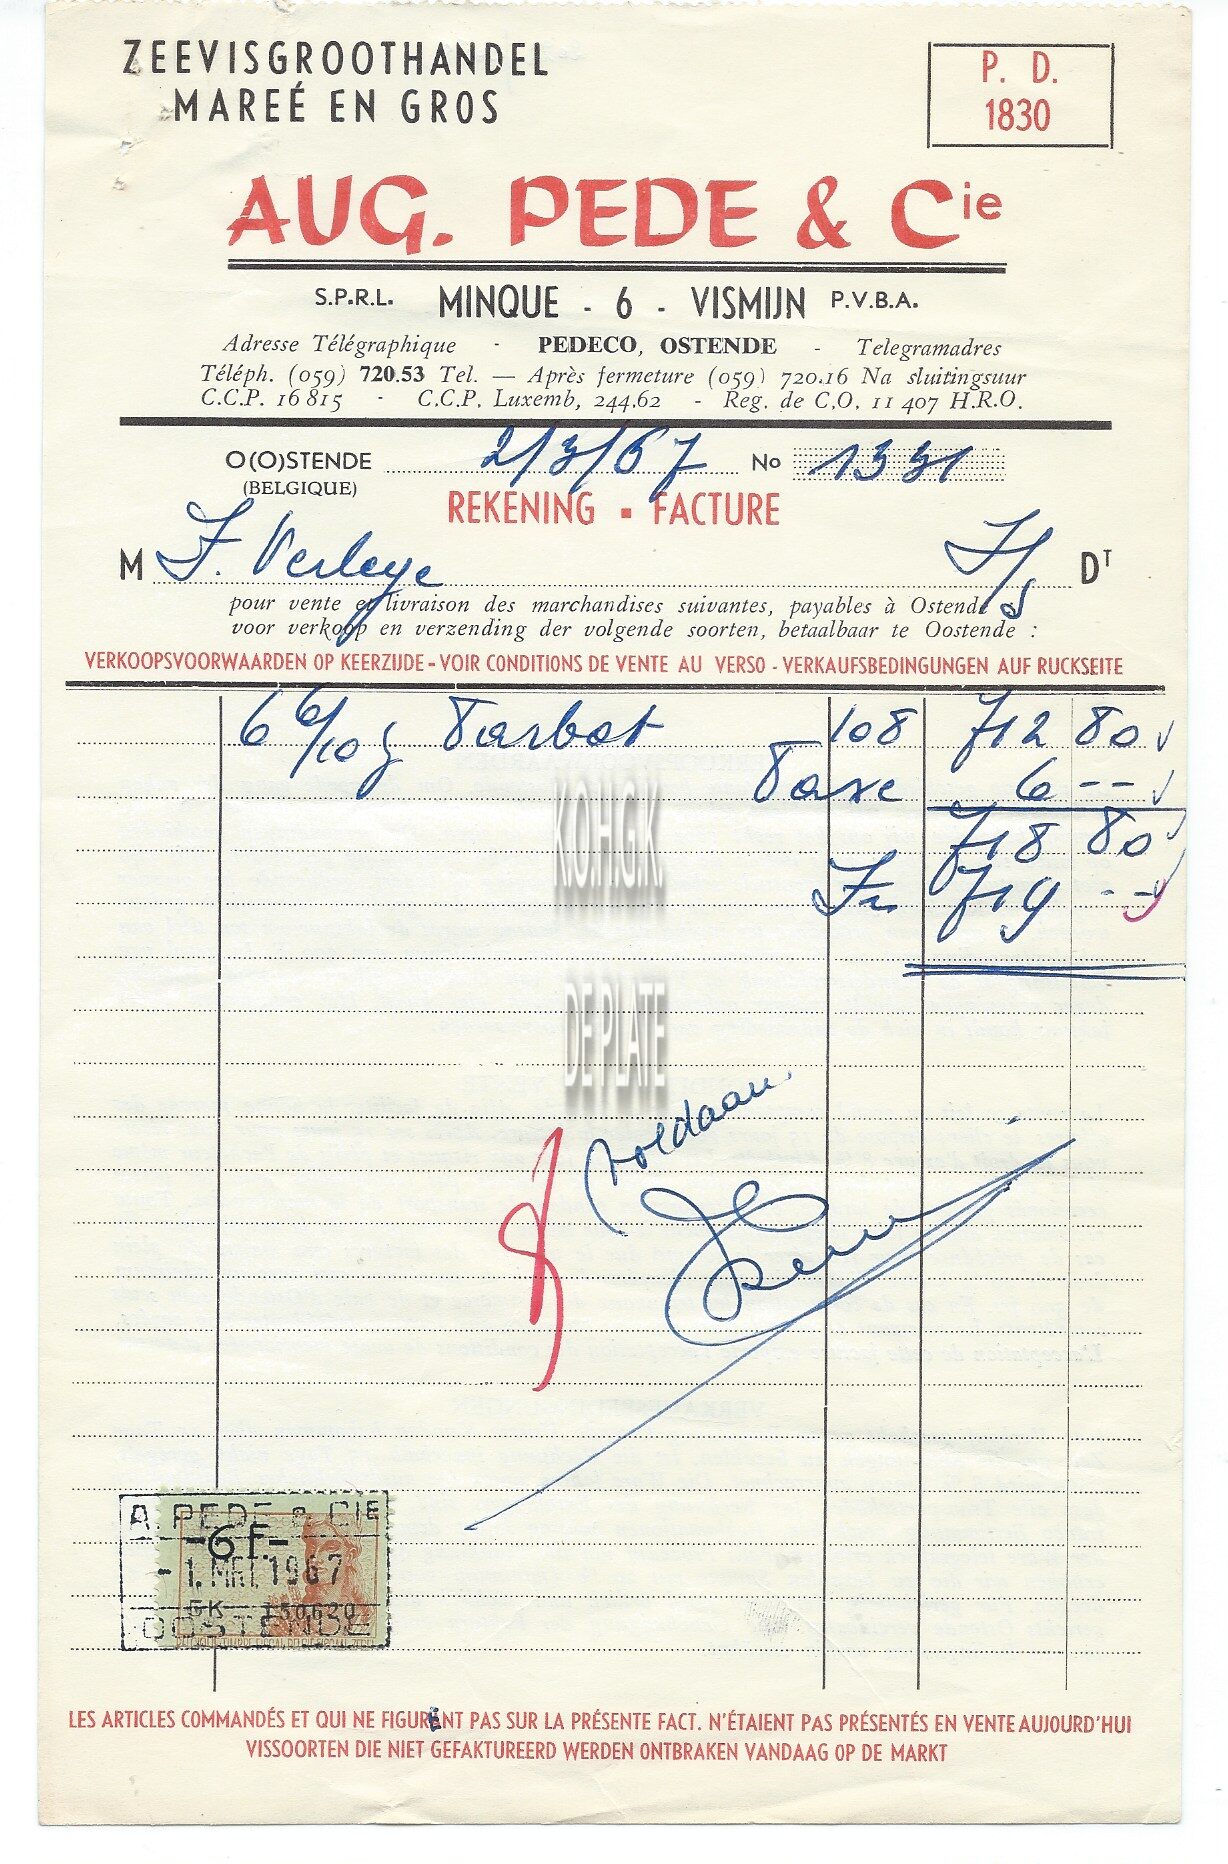 ZEEVISGROOTHANDEL
MAREÉ EN GROS
P. D.
1830
AUG. PEDE & Cie
S.P.R.L. MINQUE - 6 - VISMIJN P.V.B.A.
Adresse Télégraphique - PEDECO, OSTENDE - Telegramadres
Téléph. (059) 720.53 Tel. — Après fermeture (059) 720.16 Na sluitingsuur
C.C.P. 16 815 - C.C.P. Luxemb, 244.62 - Reg. de C.O. 11 407 H.R.O.
O(O)STENDE 2/3/67 No 1331
(BELGIQUE)
REKENING - FACTURE
M F. Verleye DT
pour vente et livraison des marchandises suivantes, payables à Ostende
voor verkoop en verzending der volgende soorten, betaalbaar te Oostende :
VERKOOPSVOORWAARDEN OP KEERZIJDE - VOIR CONDITIONS DE VENTE AU VERSO - VERKAUFSBEDINGUNGEN AUF RUCKSEITE
6 6/10 g Tarbot 108 712 80
Taxe 6 --
718 80
Fr 719 --
K.O.H.G.K.
DE PLATE
voldaan.
A. PEDE & CIE
-6F.-
-1. MRT 1967
OOSTENDE
LES ARTICLES COMMANDÉS ET QUI NE FIGURENT PAS SUR LA PRÉSENTE FACT. N'ÉTAIENT PAS PRÉSENTÉS EN VENTE AUJOURD'HUI
VISSOORTEN DIE NIET GEFAKTUREERD WERDEN ONTBRAKEN VANDAAG OP DE MARKT